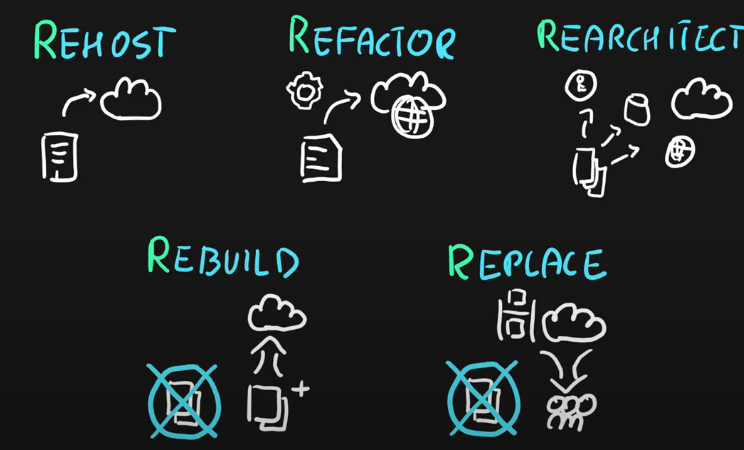 REHOST
REFACTOR
REARCHITECT
REBUILD
REPLACE